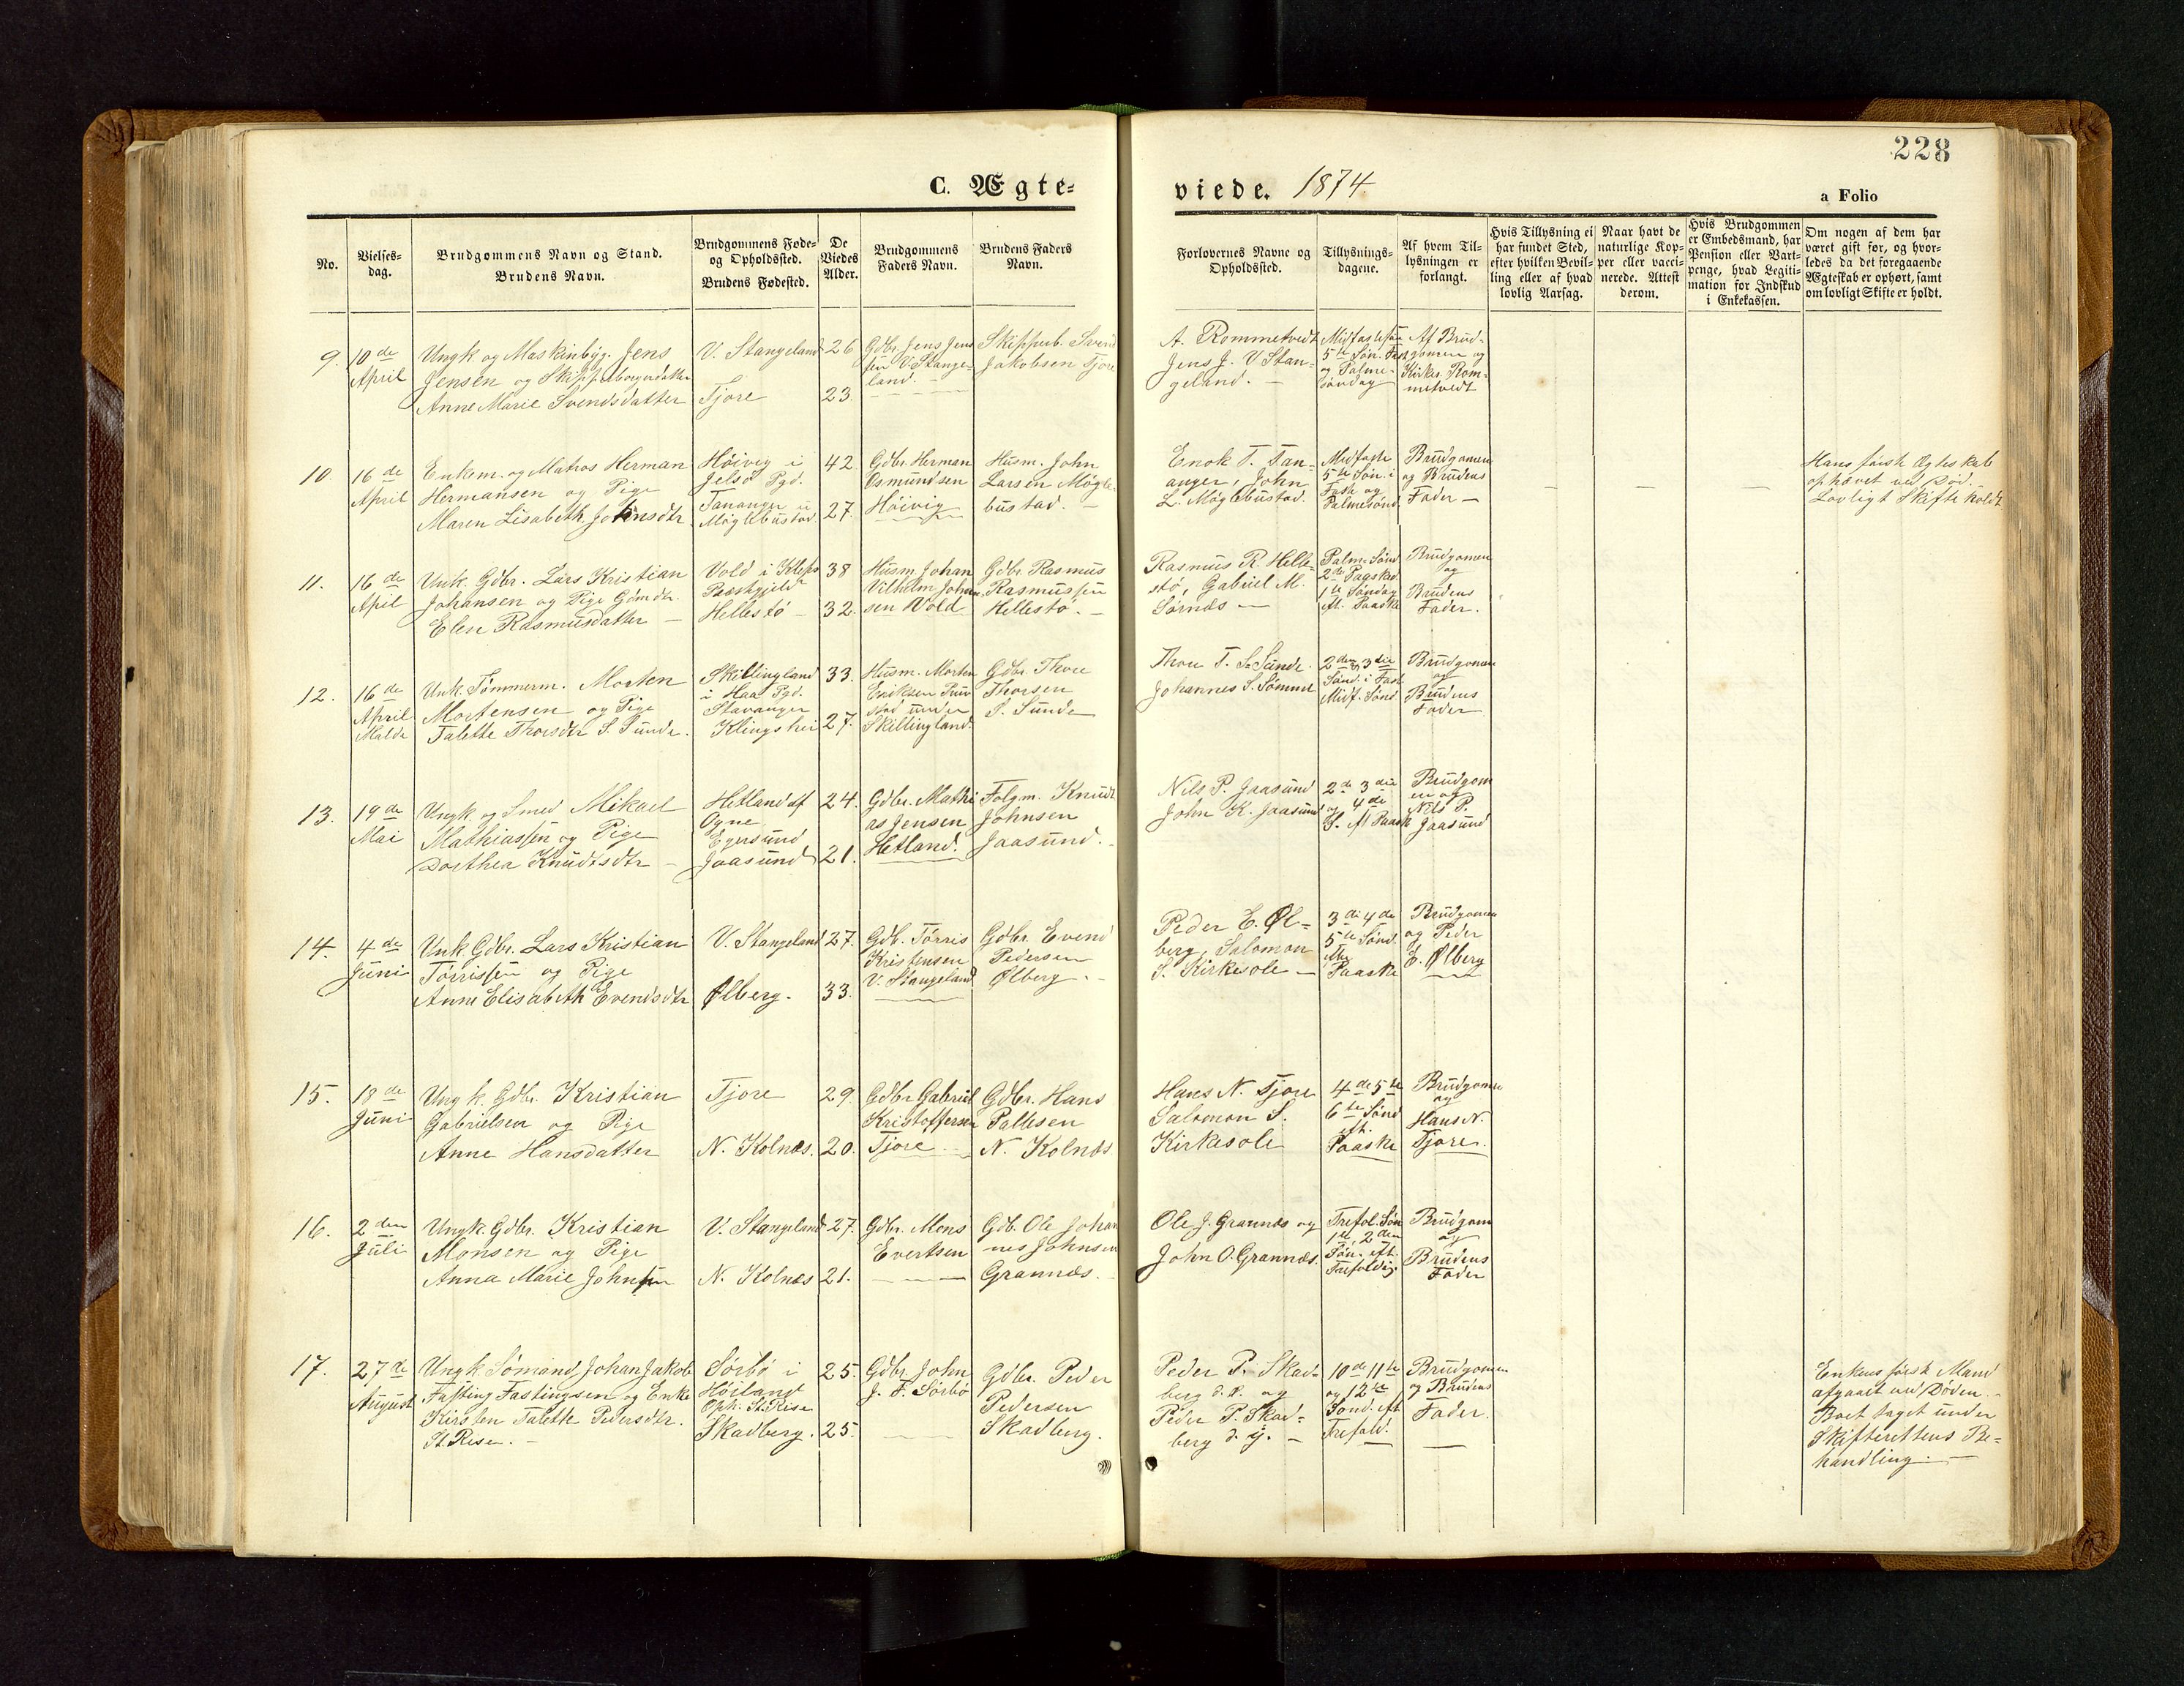 228
C. Ægte-
viede. 1874
a Folio
No.
Vielses-
dag.
Brudgommens Navn og Stand.
Brudens Navn.
Brudgommens Føde-
og Opholdssted.
Brudens Fødested.
De
Viedes
Alder.
Brudgommens
Faders Navn.
Brudens Faders
Navn.
Forlovernes Navne og
Opholdssted.
Tillysnings-
dagene.
Af hvem Til-
lysningen er
forlangt.
Hvis Tillysning ei
har fundet Sted,
efter hvilken Bevil-
ling eller af hvad
lovlig Aarsag.
Naar havt de
naturlige Kop-
per eller vacci-
nerede. Attest
derom.
Hvis Brudgommen
er Embedsmand, har
Pension eller Vart-
penge, hvad Legiti-
mation for Indskud
i Enkekassen.
Om nogen af dem har
været gift før, og hvor-
ledes da det foregaaende
Ægteskab er ophørt, samt
om lovligt Skifte er holdt.
9.
10de
April
Ungk og Maskinbyg. Jens
Jensen og Skipperborgerdatter
Anne Marie Svendsdatter
V. Stangeland
Tjore
26
23.
Gdbr. Jens Jens
sen V. Stange-
land. -
Skipperb. Svend
Jakobsen Tjore
A. Rommetvedt
Jens J. V. Stan-
geland. -
Midfastesøn
5te Søn. Fast
og Palme-
søndag
Af Brud-
gomen og
Kirkes. Rom-
metvedt
10.
16de
April
Enkem. og Matros Herman
Hermansen og Pige
Maren Lisabeth Johnsdtr
Høivig i
Jelsø Pgd.
Tananger u
Møglebustad
42.
27.
Gdbr. Herman
Osmundsen
Høivig
Husm. John
Larsen Møgle-
bustad. -
Enok T. Tan-
anger, John
L. Møglebustad.
Midfaste
5te Søn. i
Fast og
Palmesønd.
Brudgomen
og Brudens
Fader -
Hans første Ægteskab
ophævet ved Død. -
Lovligt Skifte holdt
11.
16de
April
Unk. Gdbr. Lars Kristian
Johansen og Pige Gdmdr.
Elen Rasmusdatter -
Vold i Klepp
Præstgjeld
Hellestø -
38
32.
Husm. Johan
Vilhelm Johan
sen Vold
Gdbr. Rasmus
Rasmussen
Hellestø. -
Rasmus R. Helle-
stø, Gabriel M.
Sørnæs -
Palm. Sønd
2de Paaskd.
1te Søndag
eft. Paaske
Brudgomen
og
Brudens
Fader.
12.
16de
April
Malde
Unk. Tømmerm. Morten
Mortensen og Pige
Talette Thorsdtr S. Sunde.
Skillingland
i Haa Pgd.
Stavanger
Klingshei
33.
27.
Husm. Morten
Eriksen
under
Skillingland.
Gdbr. Thore
Thorsen
S. Sunde
Thore T. S. Sunde.
Johannes S. Sømme
2den, 3die
Sønd. i Fast
Midf. Sønd.
Brudgomen
og
Brudens
Fader
13.
19de
Mai
Ungk. og Smed Mikael
Mathiassen og Pige
Dorthea Knudtsdtr -
Hetland af
Ogne
Egersund
Jaasund
24.
21.
Gdbr. Mathi
as Jensen
Hetland.
Folgm. Knudt
Johnsen
Jaasund. -
Nils P. Jaasund
John K. Jaasund
2de 3die
og 4de
S. eft Paask
Brudgom
en og
Nils P.
Jaasund
14.
4de
Juni
Unk. Gdbr. Lars Kristian
Tørrissen og Pige
Anne Elisabeth Evendsdtr
V. Stangeland
Ølberg.
27.
33.
Gdb. Tørris
Kristensen
V. Stangeland
Gdbr. Evend
Pedersen
Ølberg. -
Peder E. Øl-
berg, Salomon
S. Kirkesole -
3de 4de
5te Sønd.
efter
Paaske
Brudgomen
og Peder
E. Ølberg
15.
18de
Juni
Ungk. Gdbr. Kristian
Gabrielsen og Pige
Anne Hansdatter
Tjore
N. Kolnæs.
29.
20.
Gdbr. Gabriel
Kristoffersen
Tjore -
Gdbr. Hans
Pallesen
N. Kolnæs
Hans N. Tjore
Salomon S.
Kirkesole
4de 5te
6te Sønd
eft.
Paaske
Brudgomen
og
Hans N.
Tjore.
16.
2den
Juli
Ungk. Gdbr. Kristian
Monsen og Pige
Anna Marie Johnsen
V. Stangeland
N. Kolnæs
27.
21.
Gdbr. Mons
Evertsen
Gdb. Ole Johan
nes Johnsen
Grannæs. -
Ole J. Grannæs og
John O. Grannæs.
Trefol. Søn
1te, 2den
Søn. eft.
Trefoldig.
Brudgom
og
Brudens
Fader
17.
27de
August
Ungk. Sømand Johan Jakob
Fasting Fastingsen og Enke
Kirsten Talette Pedersdtr.
St. Rise. -
Sørbø i
Høiland
Oph. St. Rise
Skadberg.
25.
25.
Gdbr. John
J. F. Sørbø
Gdbr. Peder
Pedersen
Skadberg.
Peder P. Skad-
berg d. æ. og
Peder P. Skad-
berg d. y. -
10de 11te
og 12te
Sønd. eft
Trefold.
Brudgomen
og Brudens
Fader.
Enkens første Mand
afgaaet ved Døden. -
Boet taget under
Skifterettens Be-
handling. -